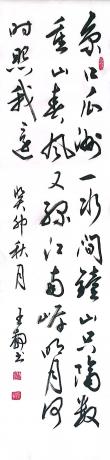 京口瓜洲一水间鐘山只隔数
重山春风又绿江南岸明月何
时照我还
癸卯秋月
王书